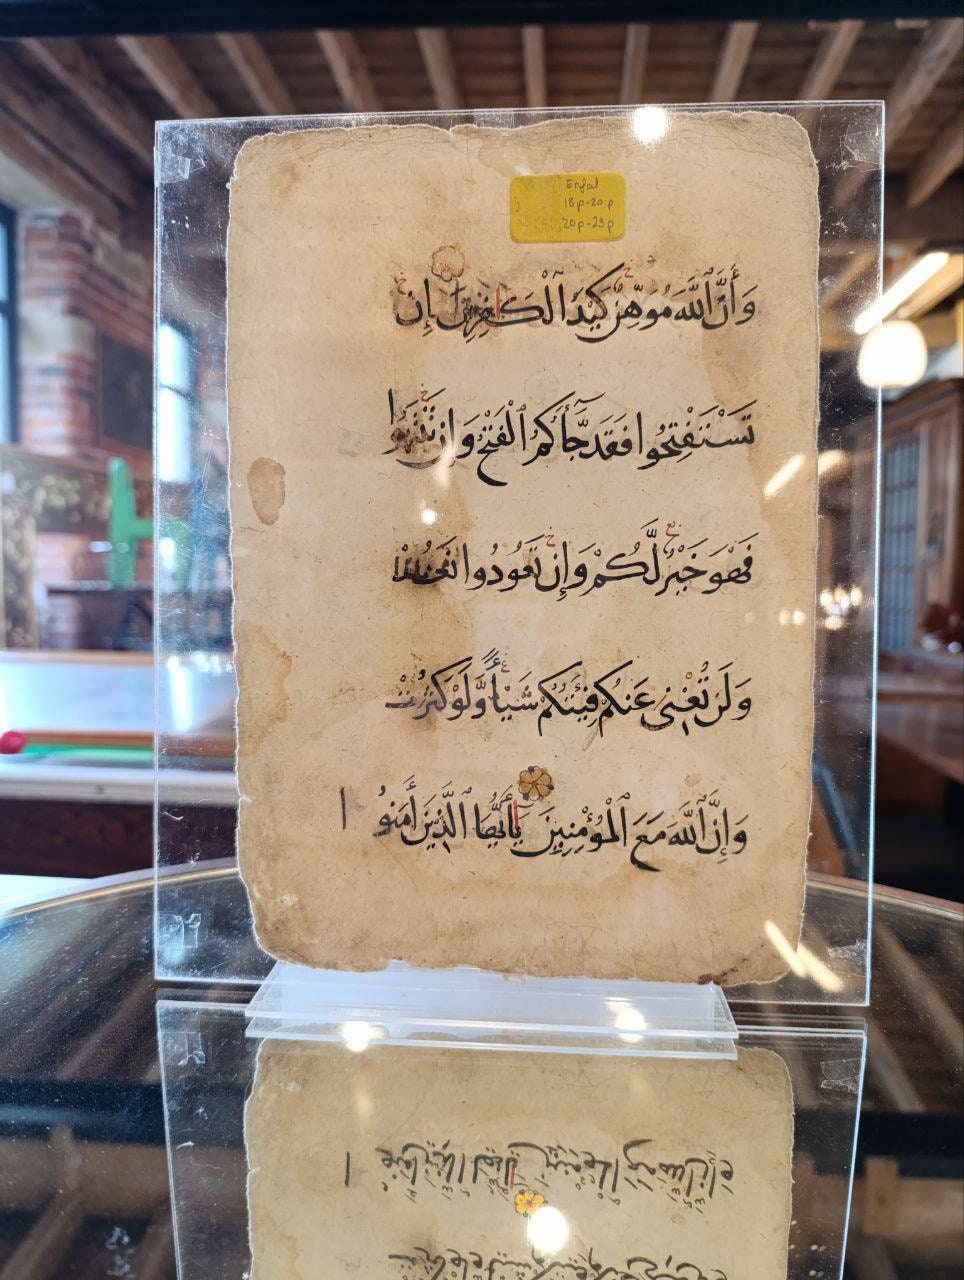 Enfal
18p-20p
20p-23p
وَأَنَّ ٱللَّهَ مُوَهِّنٌ كَيْدَ ٱلْكَٰفِرِينَ إِن
تَسْتَفْتِحُوا فَقَدْ جَّآءَكُمُ ٱلْفَتْحُ وَإِن تَنتَهُوا
فَهْوَ خَيْرٌ لَّكُمْ وَإِن تَعُودُوا نَعُدْ
وَلَن تُغْنِيَ عَنكُمْ فِئَتُكُمْ شَيْـًٔا وَّلَوْ كَثُرَتْ
وَإِنَّ ٱللَّهَ مَعَ ٱلْمُؤْمِنِينَ يَٰٓأَيُّهَا ٱلَّذِينَ أَمَنُوا